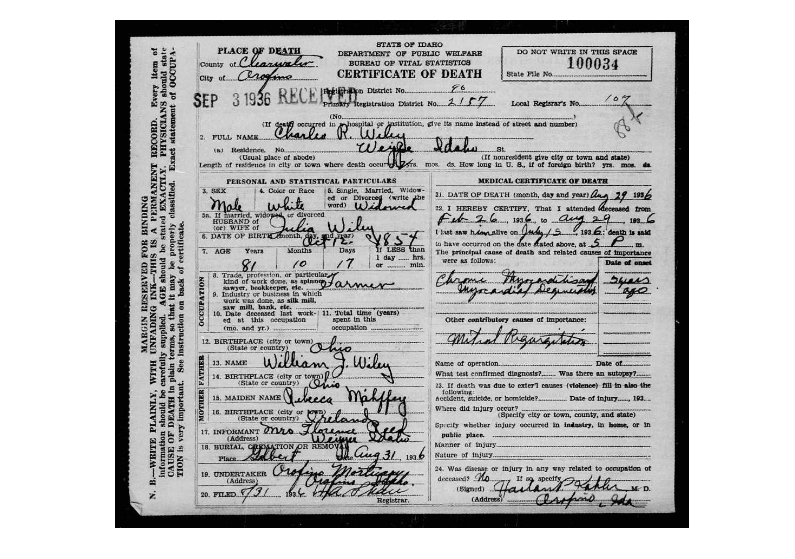 STATE OF IDAHO
DEPARTMENT OF PUBLIC WELFARE
BUREAU OF VITAL STATISTICS
CERTIFICATE OF DEATH
PLACE OF DEATH
County of Clearwater
City of Orofino
DO NOT WRITE IN THIS SPACE
100034
State File No.
SEP 3 1936 RECEIVED
Registration District No. 86
Primary Registration District No. 2187 Local Registrar's No. 107
(No.
(If death occurred in a hospital or institution, give its name instead of street and number)
2. FULL NAME Charles R. Wiley
(a) Residence. No. Weippe Idaho St.
(Usual place of abode) (If nonresident give city or town and state)
Length of residence in city or town where death occurred yrs. mos. ds. How long in U. S., if of foreign birth? yrs. mos. ds.
PERSONAL AND STATISTICAL PARTICULARS
3. SEX 4. Color or Race 5. Single, Married, Widowed or Divorced (write the word)
Male White Widowed
5a. If married, widowed, or divorced
HUSBAND of
(or) WIFE of Julia Wiley
6. DATE OF BIRTH (month, day, and year) Oct 12 1854
7. AGE Years Months Days If LESS than
1 day hrs.
or min.
81 10 17
OCCUPATION
8. Trade, profession, or particular
kind of work done, as spinner,
sawyer, bookkeeper, etc. Farmer
9. Industry or business in which
work was done, as silk mill,
saw mill, bank, etc.
10. Date deceased last worked at this occupation
(mo. and yr.)
11. Total time (years)
spent in this
occupation
12. BIRTHPLACE (city or town) Ohio
(State or country)
FATHER
13. NAME William J. Wiley
14. BIRTHPLACE (city or town) Ohio
(State or country)
MOTHER
15. MAIDEN NAME Rebecca Mahffey
16. BIRTHPLACE (city or town)
(State or country) Ireland
17. INFORMANT Mrs Florence Reed
(Address) Weippe Idaho
18. BURIAL, CREMATION OR REMOVAL
Place Gilbert Date Aug 31 1936
19. UNDERTAKER Orofino Mortuary
(Address) Orofino Idaho.
20. FILED 8/31 1936
Registrar.
MEDICAL CERTIFICATE OF DEATH
21. DATE OF DEATH (month, day and year) Aug 29 1936
22. I HEREBY CERTIFY, That I attended deceased from
Feb 26, 1936 to Aug 29, 1936
I last saw him alive on July 15 1936; death is said
to have occurred on the date stated above, at 5 P. m.
The principal cause of death and related causes of importance
were as follows:
Date of onset
Chronic Myocarditis and 5 years
Myocardial Degeneration ago
Other contributory causes of importance:
Mitral Regurgitation
Name of operation Date of
What test confirmed diagnosis? Was there an autopsy?
23. If death was due to exter'l causes (violence) fill in also the
following:
Accident, suicide, or homicide? Date of injury 193
Where did injury occur?
(Specify city or town, county, and state)
Specify whether injury occurred in industry, in home, or in
public place.
Manner of injury
Nature of injury
24. Was disease or injury in any way related to occupation of
deceased? No If so, specify
(Signed) Harlan P. Kahler M. D.
(Address) Orofino, Ida
MARGIN RESERVED FOR BINDING
N. B.—WRITE PLAINLY, WITH UNFADING INK—THIS IS A PERMANENT RECORD. Every item of
information should be carefully supplied. AGE should be stated EXACTLY. PHYSICIANS should state
CAUSE OF DEATH in plain terms, so that it may be properly classified. Exact statement of OCCUPA-
TION is very important. See instruction on back of certificate.